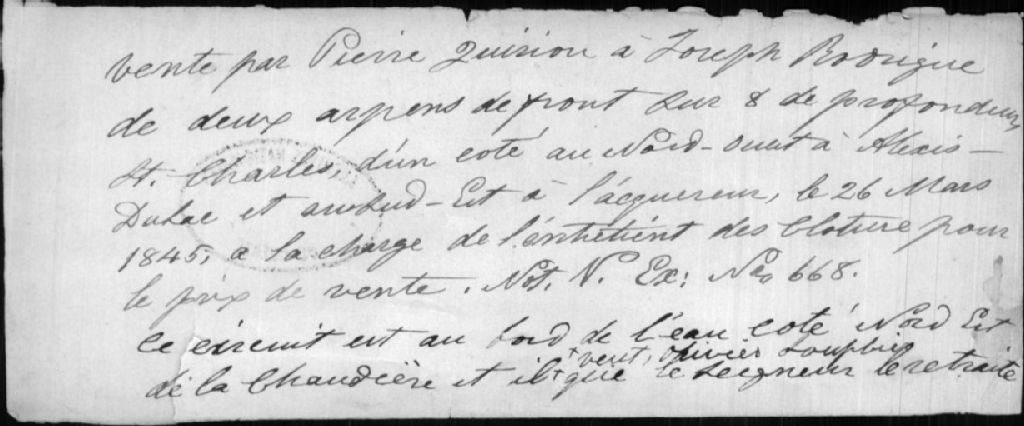 vente par Pierre Quirion à Joseph Rodrigue
de deux arpens de front sur 8 de profondeur,
St. Charles, d'un coté au Nord-ouest à Alexis
Dulac et au Sud-Est à l'acquereur, le 26 Mars
1845, a la charge de l'entretient des Cloture pour
le prix de vente. Not. V. Ex: No 668.
Ce circuit est au bord de l'eau coté Nord Est
veut, Olivier
de la Chaudière et il que le Seigneur le retraite